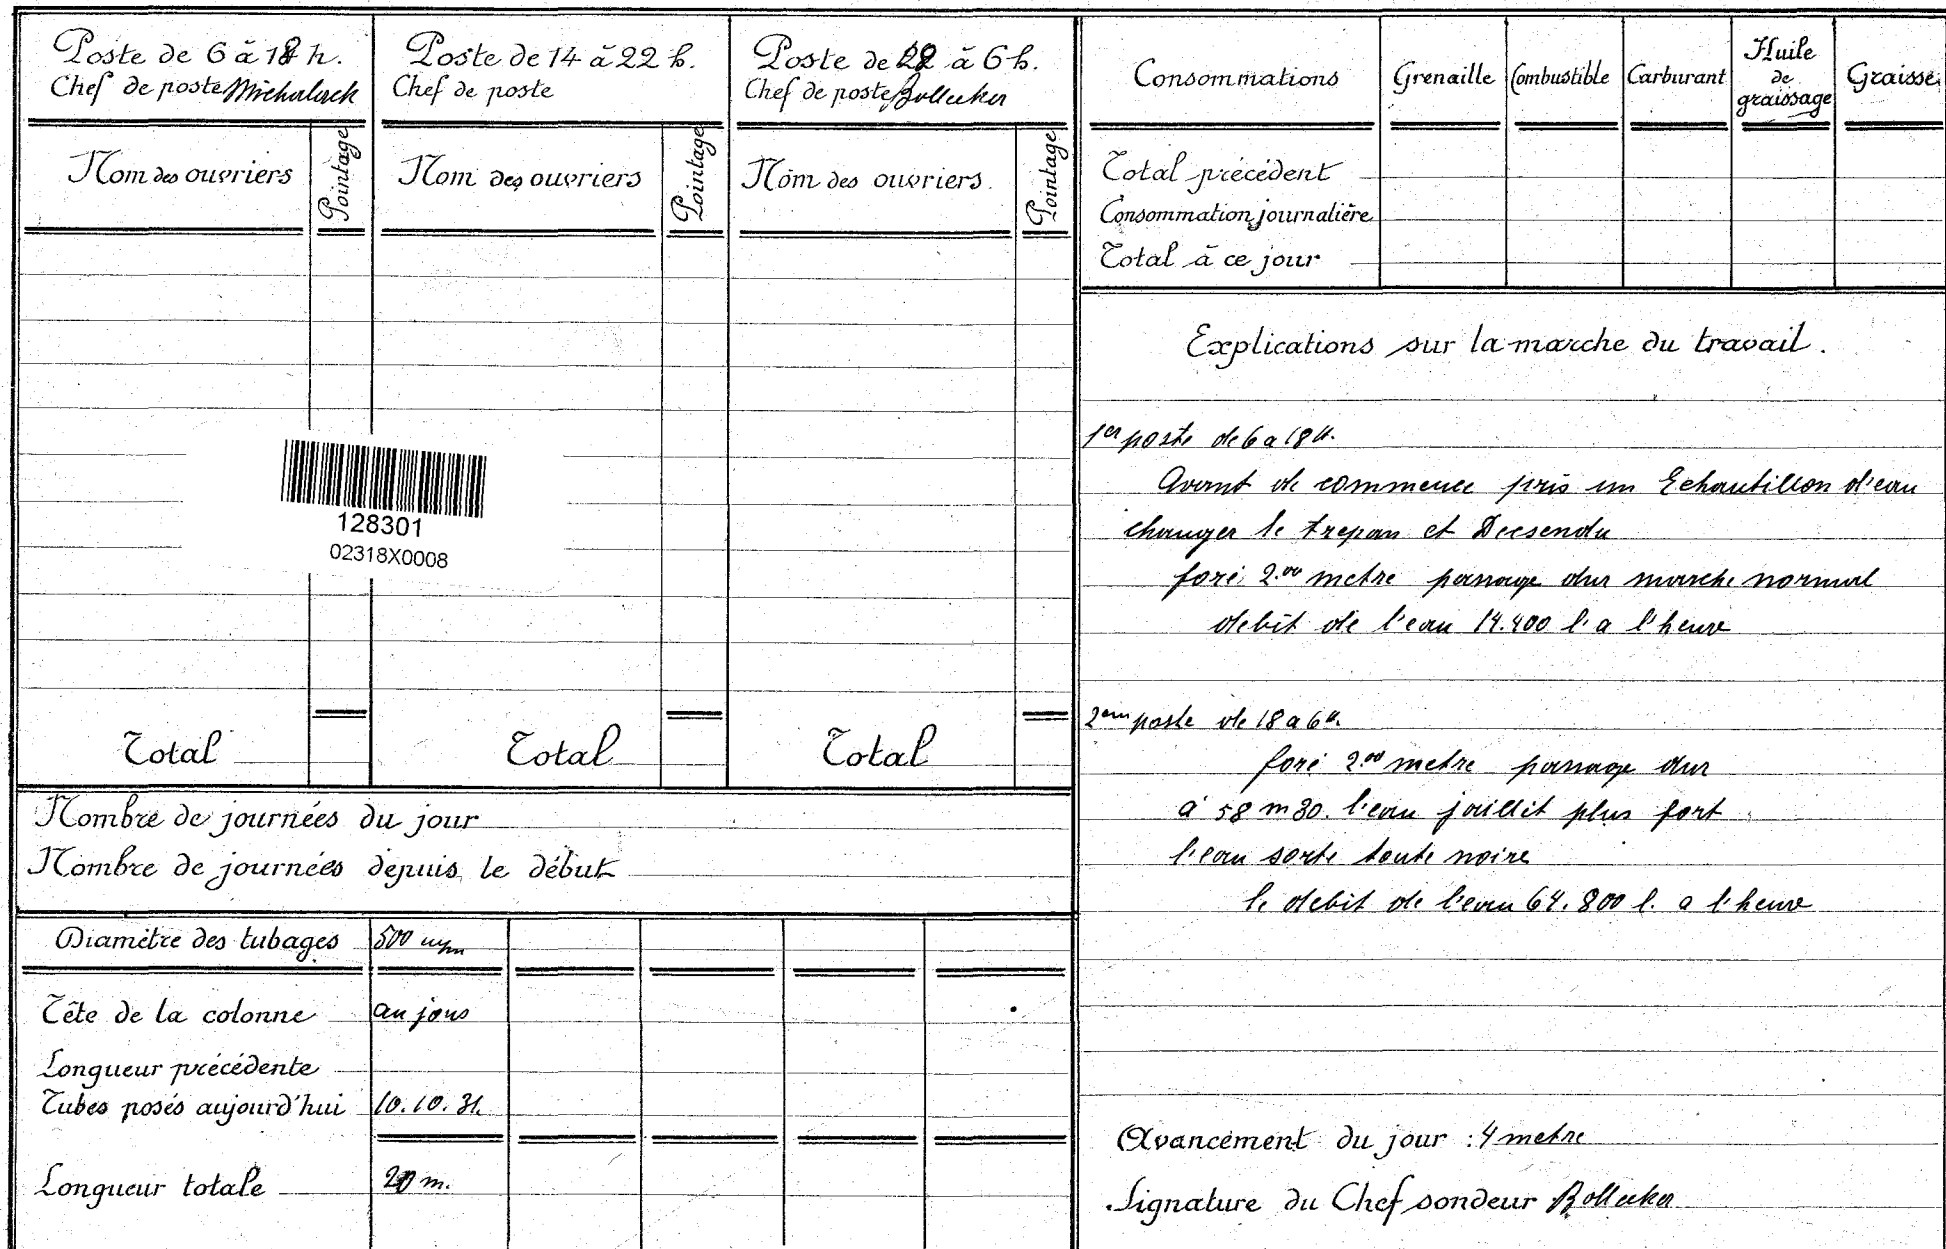 Poste de 6 à 18 h.
Chef de poste
Nom des ouvriers
Pointage
Total
Poste de 14 à 22 h.
Chef de poste
Nom des ouvriers
Pointage
Total
Poste de à 6 h.
Chef de poste Bollecker
Nom des ouvriers
Pointage
Total
128301
02318X0008
Nombre de journées du jour
Nombre de journées depuis le début
Diamètre des tubages 500 m/m
Tête de la colonne au jour
Longueur précédente
Tubes posés aujourd'hui 10.10.31.
Longueur totale 20 m.
Consommations Grenaille Combustible Carburant Huile de graissage Graisse
Total précédent
Consommation journalière
Total à ce jour
Explications sur la marche du travail.
1er poste de 6 a 18 h.
Avant de commence pris un Echantillon d'eau
changer le trepan et Decsendu
foré 2.00 metre passage dur marche normal
debit de l'eau 14.400 l. a l'heure
2em poste de 18 a 6 h.
foré 2.00 metre passage dur
à 58 m 30. l'eau jaillit plus fort
l'eau sorte toute noire
le debit de l'eau 64.800 l. a l'heure
Avancement du jour : 4 metre
Signature du Chef sondeur Bollecker